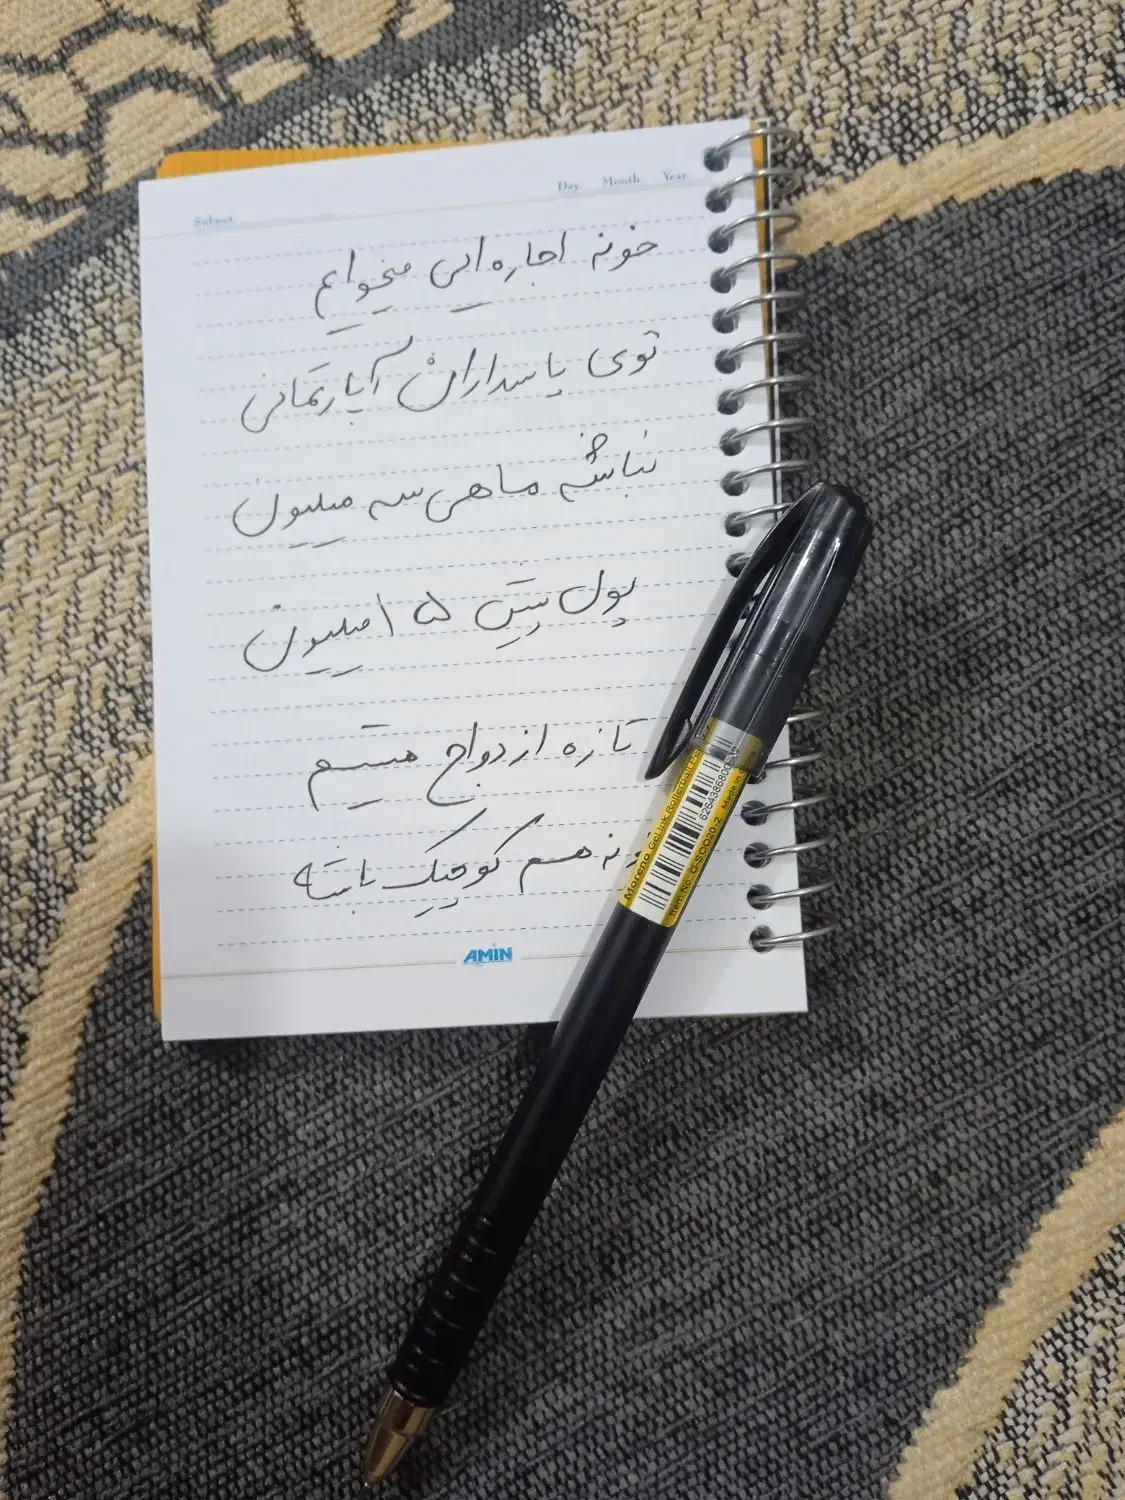 Subject
Day Month Year
خونه اجاره‌ایی میخوایم
توی پاسداران آپارتمانی
نباشه ماهی سه میلیون
پول پیش ۱۵ میلیون
تازه ازدواج هستیم
هم کوچیک باشه
AMIN
Moreno Gel Ink Rollerball Pen
6264386800
Item No. G-SOO20-2 Made in